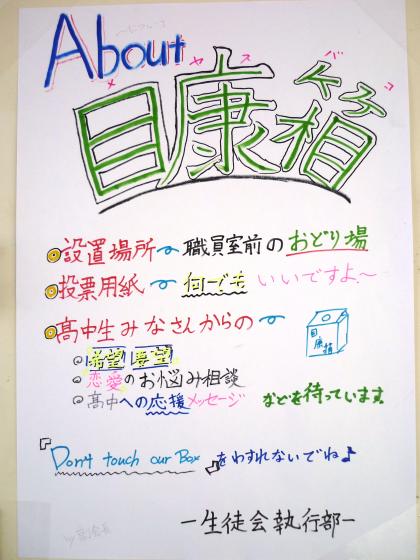 About
メヤスバコ
目康箱
設置場所〜職員室前のおどり場
投票用紙〜何でもいいですよ〜
高中生みなさんからの〜
目康箱
希望 要望
恋愛のお悩み相談
高中への応援メッセージ
などを待っています。
『Don't touch our Box』をわすれないでね♪
by 副会長
ー生徒会執行部ー